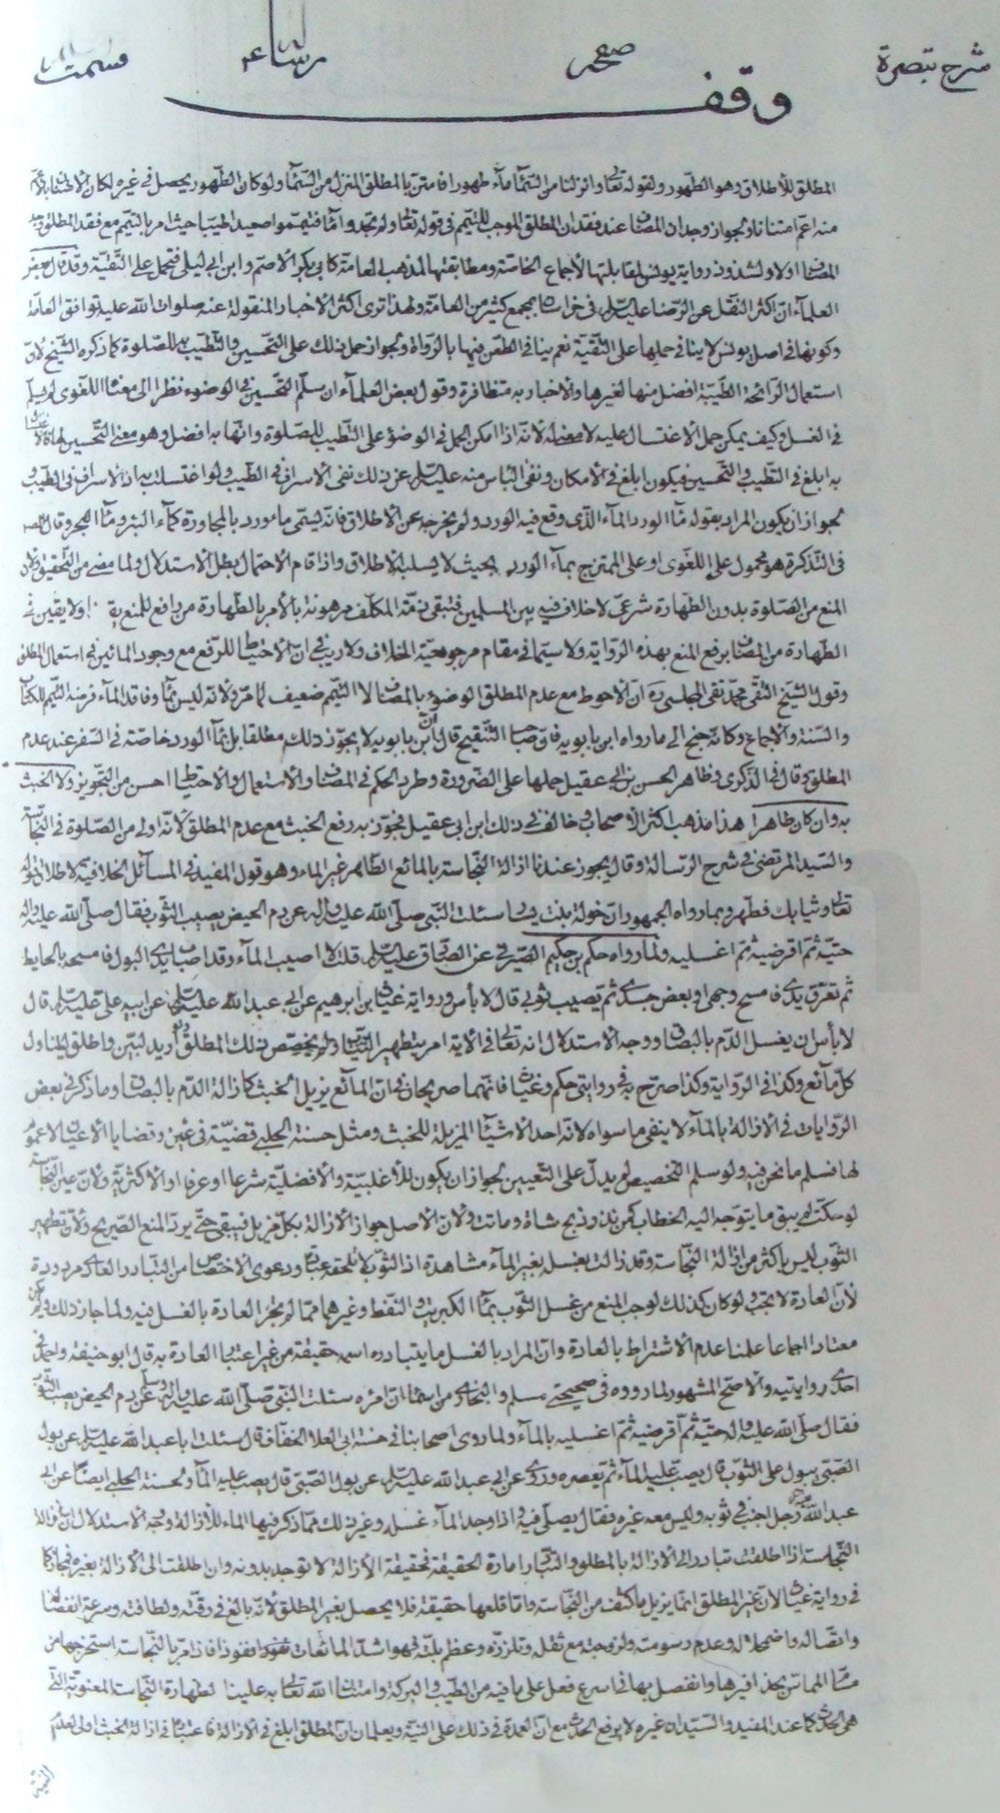 شرح تبصرة صفحه رساله قسمت
وقف
المطلق للأطلاق وهو الطهور ولقوله تعالى وانزلنا من السماء ماء طهورا فامتن بالمطلق المنزل من السماء ولو كان الطهور يحصل في غيره لكان
منه اعم امتنانا ولجواز وجدان المضاف عند فقدان المطلق الموجب للتيمم في قوله تعالى ولم تجدوا ماء فتيمموا صعيدا طيبا حيث امر بالتيمم مع فقد المطلق
المضاف اولا ولشذوذ رواية يونس لمقابلتها لاجماع الخاصة ومطابقتها لمذهب العامة كابي بكر الاصم وابن ابي ليلى فتحمل على التقية وقد قال بعض
العلماء ان اكثر النقل عن الرضا عليه السلام في خراسان بمجمع كثير من العامة ولهذا ترى اكثر الاخبار المنقولة عنه صلوات الله عليه توافق العامة
وكونها في اصل يونس لا ينافي حملها على التقية نعم ينافي الطعن فيها بالرواة ولجواز حمل ذلك على التحسين والتطيب به للصلوة كما ذكره الشيخ لان
استعمال الرائحة الطيبة افضل منها لغيرها والاخبار به متظافرة وقول بعض العلماء ان سلم التحسين في الوضوء نظرا الى معناه اللغوي لم يسلم
في الغسل وكيف يمكن حمل الاغتسال عليه لانه اذا امكن الحمل في الوضوء على التطيب للصلوة وانها به افضل وهو معنى التحسين لها
به ابلغ في التطيب والتحسين فيكون ابلغ في الامكان ونفى الباس منه عليه السلام عن ذلك نفى الاسراف في الطيب ولو اغتسلت به اذ لا سراف في الطيب و
لجواز ان يكون المراد بقوله ماء الورد الماء الذي وقع فيه الورد ولم يخرجه عن الاطلاق فانه يسمى ماء ورد بالمجاورة كماء البئر وماء البحر وقال
في التذكرة هو محمول على اللغوي او على الممتزج بماء الورد بحيث لا يسلبه الاطلاق واذا قام الاحتمال بطل الاستدلال ولما مضى من التحقيق ولان
المنع من الصلوة بدون الطهارة شرعي لا خلاف فيه بين المسلمين فتبقى ذمة المكلف مرهونة بالامر بالطهارة من رافع للمنع به ولا يقين في
الطهارة من المضاف برفع المنع بهذه الرواية ولا سيما في مقام مرجوحية الخلاف ولا ريب في ان الاحتياط للرفع مع وجود المائين في استعمال المطلق
وقول الشيخ التقي محمد تقي المجلسي ره ان الاحوط مع عدم المطلق الوضوء بالمضاف لا التيمم ضعيف لما مر ولانه ليس بماء وفاقد الماء فرضه التيمم للكتاب
والسنة والاجماع وكانه جنح الى ما رواه ابن بابويه فان صاحب التنقيح قال ان ابن بابويه لا يجوز ذلك مطلقا بل بماء الورد خاصة في السفر عند عدم
المطلق وقال في الذكرى وظاهر الحسن بن ابي عقيل حملها على الضرورة وطرد الحكم في المضاف والاستعمال والاحتياط احسن من التجويز ولا الخبث
به وان كان طاهرا هذا مذهب اكثر الاصحاب وخالف في ذلك ابن ابي عقيل فجوز به رفع الخبث مع عدم المطلق لانه اولى من الصلوة في النجاسة
والسيد المرتضى في شرح الرسالة وقال يجوز عندنا ازالة النجاسة بالمائع الطاهر غير الماء وهو قول المفيد في المسائل الخلافية لاطلاق قوله
تعالى وثيابك فطهر وبما رواه الجمهور ان خولة بنت يسار سئلت النبي صلى الله عليه واله عن دم الحيض يصيب الثوب فقال صلى الله عليه واله
حتيه ثم اقرضيه ثم اغسليه ولما رواه حكم بن حكيم الصيرفي عن الصادق عليه السلام قلت لا اصيب الماء وقد اصاب يدي البول فامسحه بالحايط
ثم تعرق يدي فامسح وجهي او بعض جسدي ثم يصيب ثوبي قال لا بأس ورواية غياث بن ابرهيم عن ابي عبد الله عليه السلام عن ابيه عن علي عليه السلام قال
لا بأس ان يغسل الدم بالبصاق ووجه الاستدلال انه تعالى في الاية امر بتطهير الثياب ولم يخصص ذلك المطلق ولو اريد لبين واطلق ليتناول
كل مائع وكذا في الرواية وكذا صرح به في روايتي حكم وغياث فانهما صريحان في ان المائع يزيل الخبث كازالة الدم بالبصاق وما ذكر في بعض
الروايات في الازالة بالماء لا ينفي ما سواه لانه احد الاشياء المزيلة للخبث ومثل حسنة الحلبي قضية في عين وقضايا الاعيان لا عموم
لها فسلم ما نحن فيه ولو سلم التخصيص لم يدل على التعيين لجواز ان يكون للأغلبية والافضلية شرعا او عرفا او الاكثرية ولان عين النجاسة
لو حكت لم يبق ما يتوجه اليه الخطاب كمن نذر ذبح شاة وماتت ولان الاصل جواز الازالة بكل مزيل فيبقى حتى يرد المنع الصريح ولان تطهير
الثوب ليس باكثر من ازالة النجاسة وقد زالت بغسله بغير الماء مشاهدة اذ الثوب لا تلحقه عبادة ودعوى الاختصاص من التبادر العادي مردودة
لان العادة لا تجب ولو كان كذلك لوجب المنع من غسل الثوب بماء الكبريت والنفط وغيرهما مما لم تجر العادة بالغسل فيه ولما جاز ذلك ولم يكن
معتادا اجماعا علمنا عدم الاشتراط بالعادة وان المراد بالغسل ما يتبادره اسمه حقيقة من غير اعتبار العادة به قال ابو حنيفة واحمد في
احدى روايتيه والاصح المشهور لما رووه في صحيحي مسلم والبخاري من اسماء ان امرءة سئلت النبي صلى الله عليه واله وسلم عن دم الحيض يصيب الثوب
فقال صلى الله عليه واله حتيه ثم اقرضيه ثم اغسليه بالماء ولما روى اصحابنا في حسنة ابي العلا الخفاف قال سئلت ابا عبد الله عليه السلام عن بول
الصبي يبول على الثوب قال يصب عليه الماء ثم يعصره وروي عن ابي عبد الله عليه السلام عن بول الصبي قال يصب عليه الماء ولحسنة الحلبي ايضا عن ابي
عبد الله رجل اجنب في ثوبه وليس معه غيره فقال يصلي فيه واذا وجد الماء غسله وغير ذلك مما ذكر فيها الماء للازالة ووجه الاستدلال ان ازالة
النجاسة اذا اطلقت تبادر الى الازالة بالمطلق والتبادر امارة الحقيقة فحقيقة الازالة لا توجد بدونه وان اطلقت الى الازالة بغيره فمجاز كما
في رواية غياث لان غير المطلق انما يزيل ما كثف من النجاسة واما قلعها حقيقة فلا يحصل بغير المطلق لانه بالغ في رقته ولطافته وسرعة انفصاله
واتصاله واضمحلاله وعدم دسومته ولزوجته مع ثقله وتلززه وعظم بلته فهو اشد المائعات نفوذا فاذا مر بالنجاسة استخرجها من
مسام المماس بحذافيرها وانفصل بها في اسرع فعل على ما فيه من الطيب والبركة وامتنان الله تعالى به علينا لطهارة النجاسة المعنوية التي
هي الحدث كما عند المفيد والسيد اذ غيره لا يرفع الحدث مع ان العمدة في ذلك على النية ويعلمان ان المطلق ابلغ في الازالة فاعتباره في ازالة الخبث اولى لعدم
النية